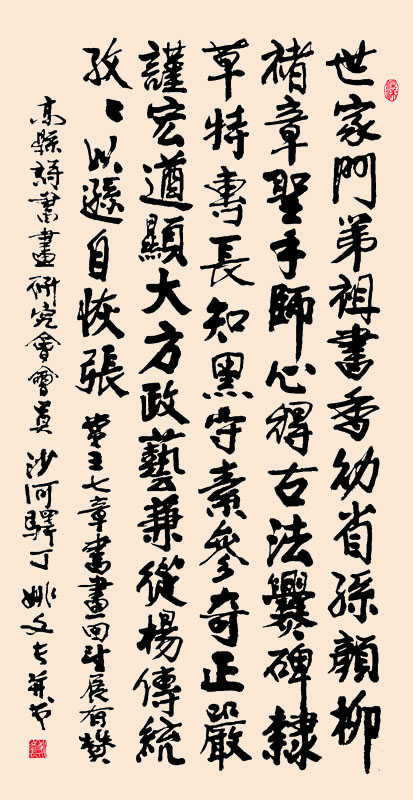 世家門弟祖書香幼省孫顏柳
褚章聖手師心得古法爨碑隸
草特專長知黑守素參奇正嚴
謹宏道顯大方政藝兼從楊傳統
孜々以遜自恢張 七章書畫回展有贊
縣詩書畫研究會會員 沙河驛丁 姚文并書